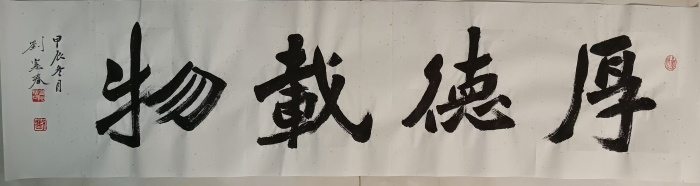 厚德載物
甲辰冬月
劉